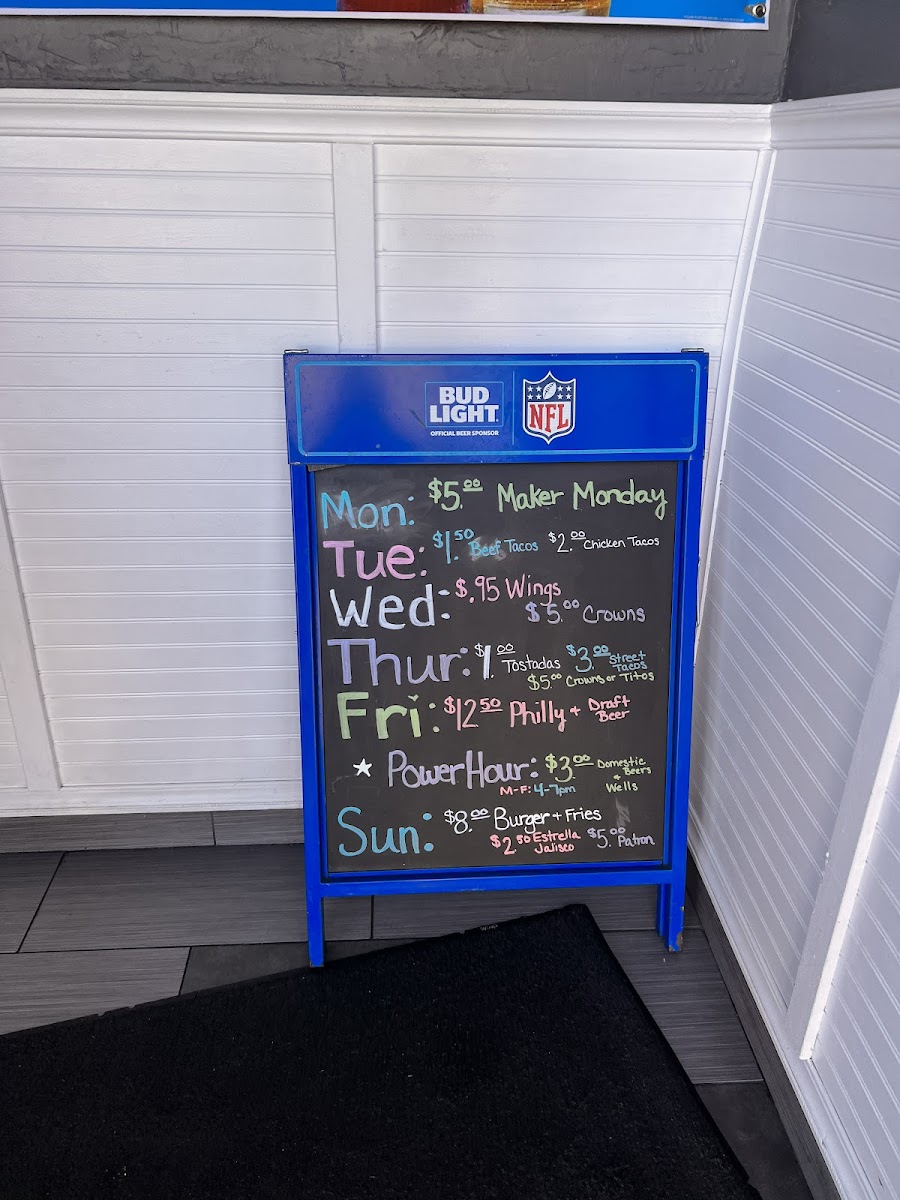 BUD
LIGHT
OFFICIAL BEER SPONSOR
NFL
Mon: $5.00 Maker Monday
Tue: $1.50 Beef Tacos $2.00 Chicken Tacos
Wed: $.95 Wings
$5.00 Crowns
Thur: $1.00 Tostadas $3.00 Street Tacos
$5.00 Crowns or Titos
Fri: $12.50 Philly + Draft Beer
Power Hour: $3.00 Domestic Beers + Wells
M-F: 4-7pm
Sun: $8.00 Burger + Fries
$2.50 Estrella Jalisco $5.00 Patron